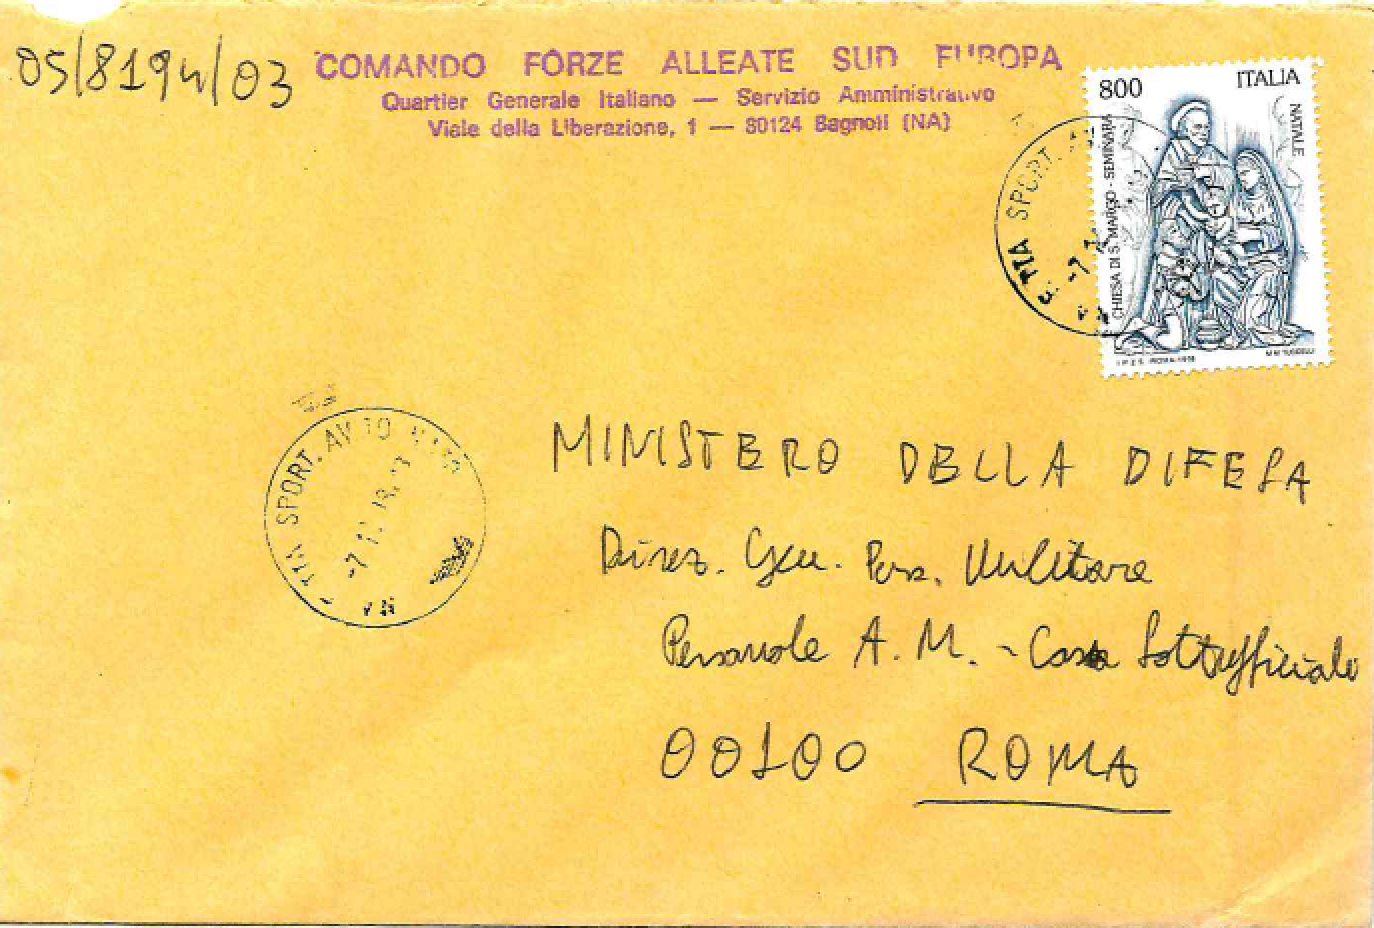 05/8194/03
COMANDO FORZE ALLEATE SUD EUROPA
Quartier Generale Italiano — Servizio Amministrativo
Viale della Liberazione, 1 — 80124 Bagnoli (NA)
800 ITALIA
NATALE
CHIESA DI S. MARCO - SEMINARA
I.P.Z.S. ROMA 1998
M.M. TUCCELLI
SPORT.
SPORT. AV
MINISTERO DELLA DIFESA
Direz. Gen. Pers. Militare
Personale A. M. - Casa Sottufficiale
00100 ROMA